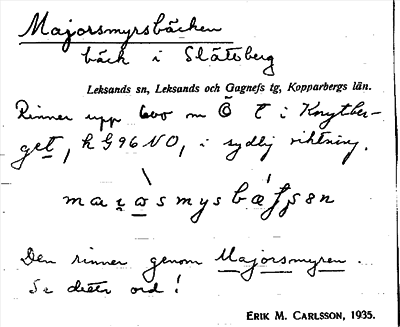 Majorsmyrsbäcken
bäck i Slättberg
Leksands sn, Leksands och Gagnefs tg, Kopparbergs län.
Rinner upp 600 m Ö t i Knytber-
get, k G96NO, i sydlig riktning.
Den rinner genom Majorsmyren.
Se detta ord!
ERIK M. CARLSSON, 1935.